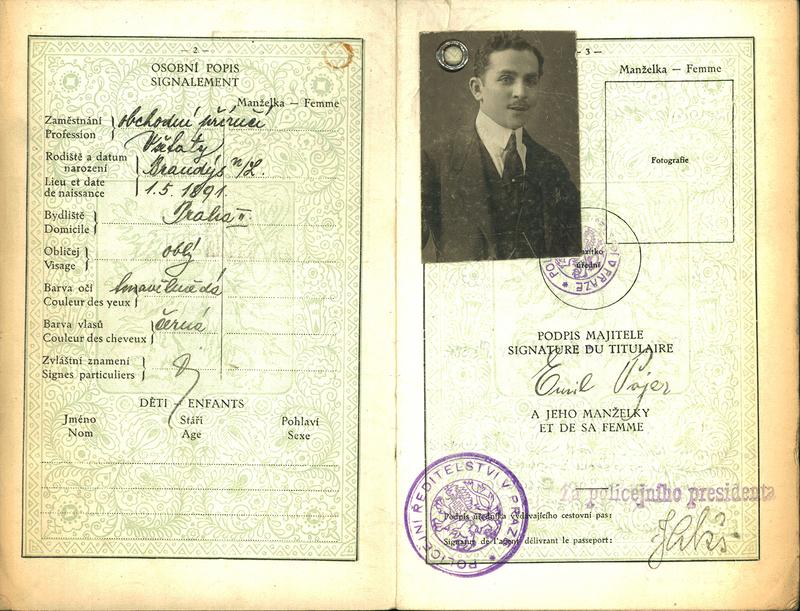 — 2 —
OSOBNÍ POPIS
SIGNALEMENT
Manželka — Femme
Zaměstnání
Profession
obchodní příručí
Rodiště a datum
narození
Všetaty
Brandýs n/L.
Lieu et date
de naissance
1.5.1891.
Bydliště
Domicile
Praha II.
Obličej
Visage
oblý
Barva očí
Couleur des yeux
tmavěhnědá
Barva vlasů
Couleur des cheveux
černá
Zvláštní znamení
Signes particuliers
DĚTI — ENFANTS
Jméno
Nom
Stáří
Age
Pohlaví
Sexe
3 —
Manželka — Femme
Fotografie
úřední
V PRAZE
PODPIS MAJITELE
SIGNATURE DU TITULAIRE
Emil Pajer
A JEHO MANŽELKY
ET DE SA FEMME
POLICEJNÍ ŘEDITELSTVÍ V PRAZE
Za policejního presidenta
Podpis úředníka vydávajícího cestovní pas:
Signature de l'agent délivrant le passeport: